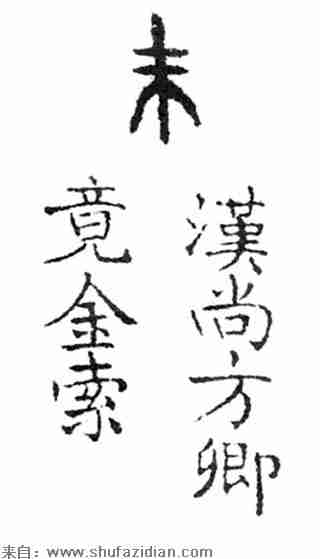 未
漢尚方卿
竟金索
来自：www.shufazidian.com